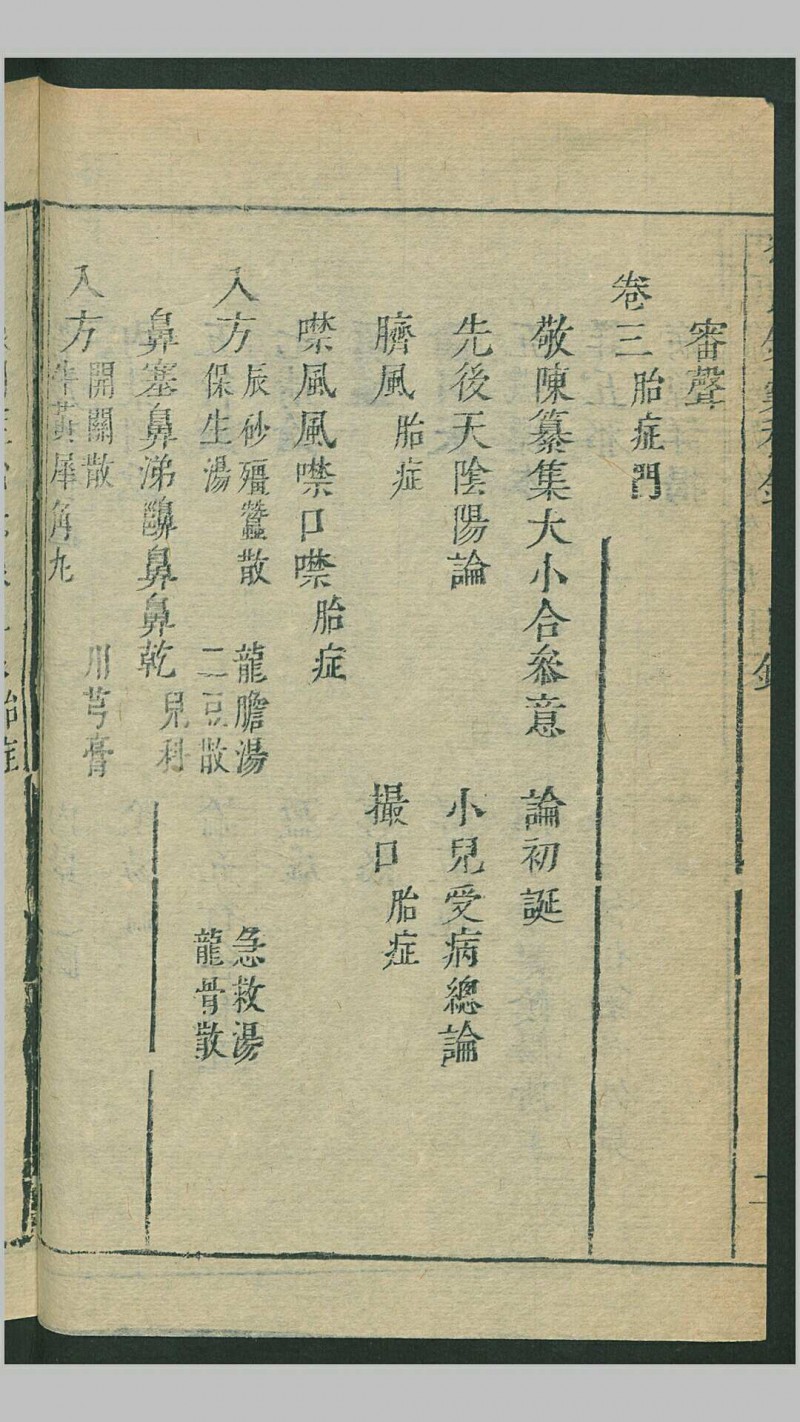 審聲
卷三 胎症門
敬陳纂集大小合叅意 論初誕
先後天陰陽論 小兒受病總論
臍風 胎症 撮口 胎症
噤風風噤口噤 胎症
入方 辰砂殭蠶散 龍膽湯 急救湯
保生湯 二豆散 龍骨散
鼻塞鼻涕鼻鼻乾 兒科
入方 開關散 川芎膏
犀角丸
二